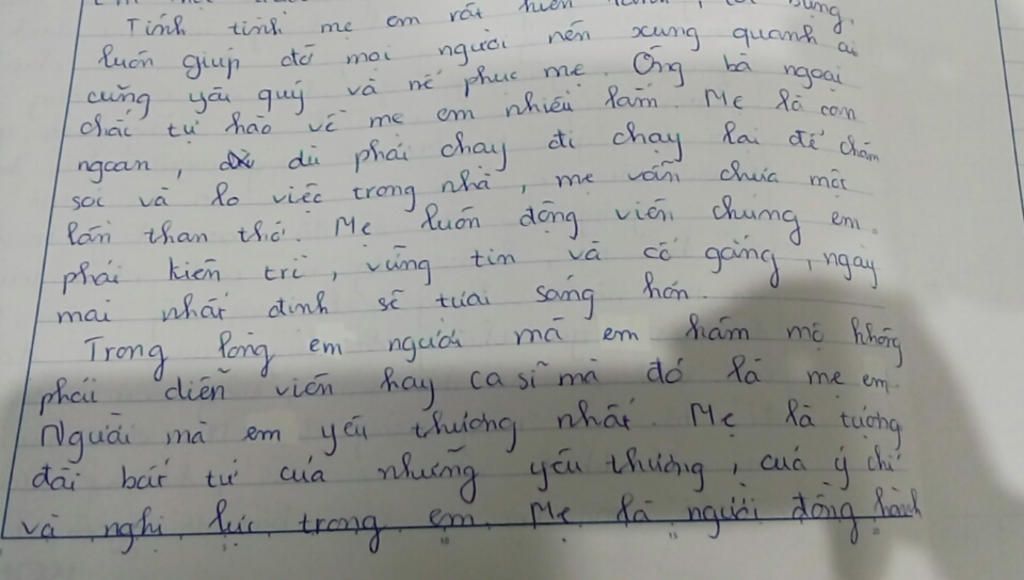 Tính tình mẹ em rất hiền
luôn giúp đỡ mọi người nên xung quanh ai
cũng yêu quý và nể phục mẹ. Ông bà ngoại
chắc tự hào về mẹ em nhiều lắm. Mẹ là con
ngoan, dù phải chạy đi chạy lại để chăm
sóc và lo việc trong nhà, mẹ vẫn chưa một
lần than thở. Mẹ luôn động viên chúng em
phải kiên trì, vững tin và cố gắng, ngày
mai nhất định sẽ tươi sáng hơn.
Trong lòng em người mà em hâm mộ không
phải diễn viên hay ca sĩ mà đó là mẹ em.
Người mà em yêu thương nhất. Mẹ là tượng
đài bất tử của những yêu thương, của ý chí
và nghị lực trong em. Mẹ là người đồng hành